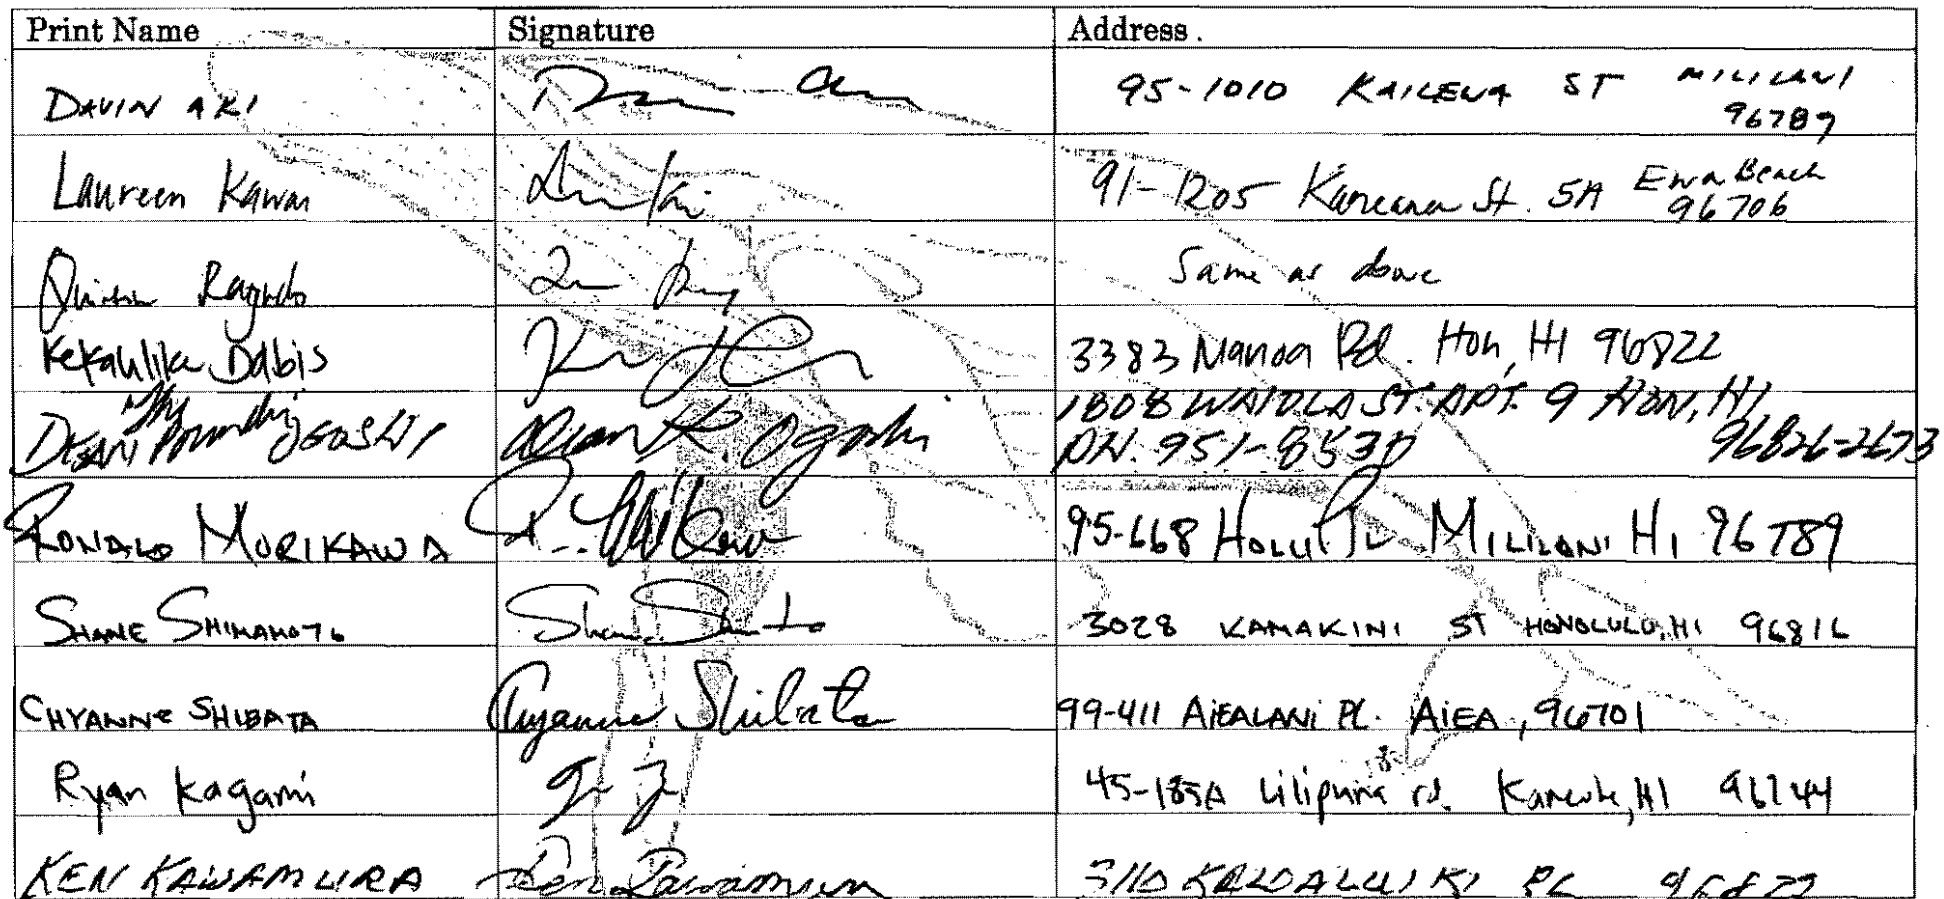 Print Name Signature Address
DAVIN AKI 95-1010 KAILEWA ST MILILANI
96789
Laureen Kawai 91-1205 Kaneana St. 5A Ewa Beach
96706
Same as above
Kekaulike Dabis 3383 Manoa Rd. Hon, HI 96822
DEAN OGOSHI Dean K. Ogoshi 1808 WAIOLA ST. APT. 9 HON, HI
PH. 951-8530 96826-2673
RONALD MORIKAWA 95-668 HOLU PL MILILANI HI 96789
SHANE SHIMAMOTO 3028 KAMAKINI ST HONOLULU, HI 96816
CHYANNE SHIBATA Chyanne Shibata 99-411 AIEALANI PL. AIEA, 96701
Ryan Kagami 45-185A Lilipuna rd. Kaneohe, HI 96744
KEN KAWAMURA Ken Kawamura PL 96822